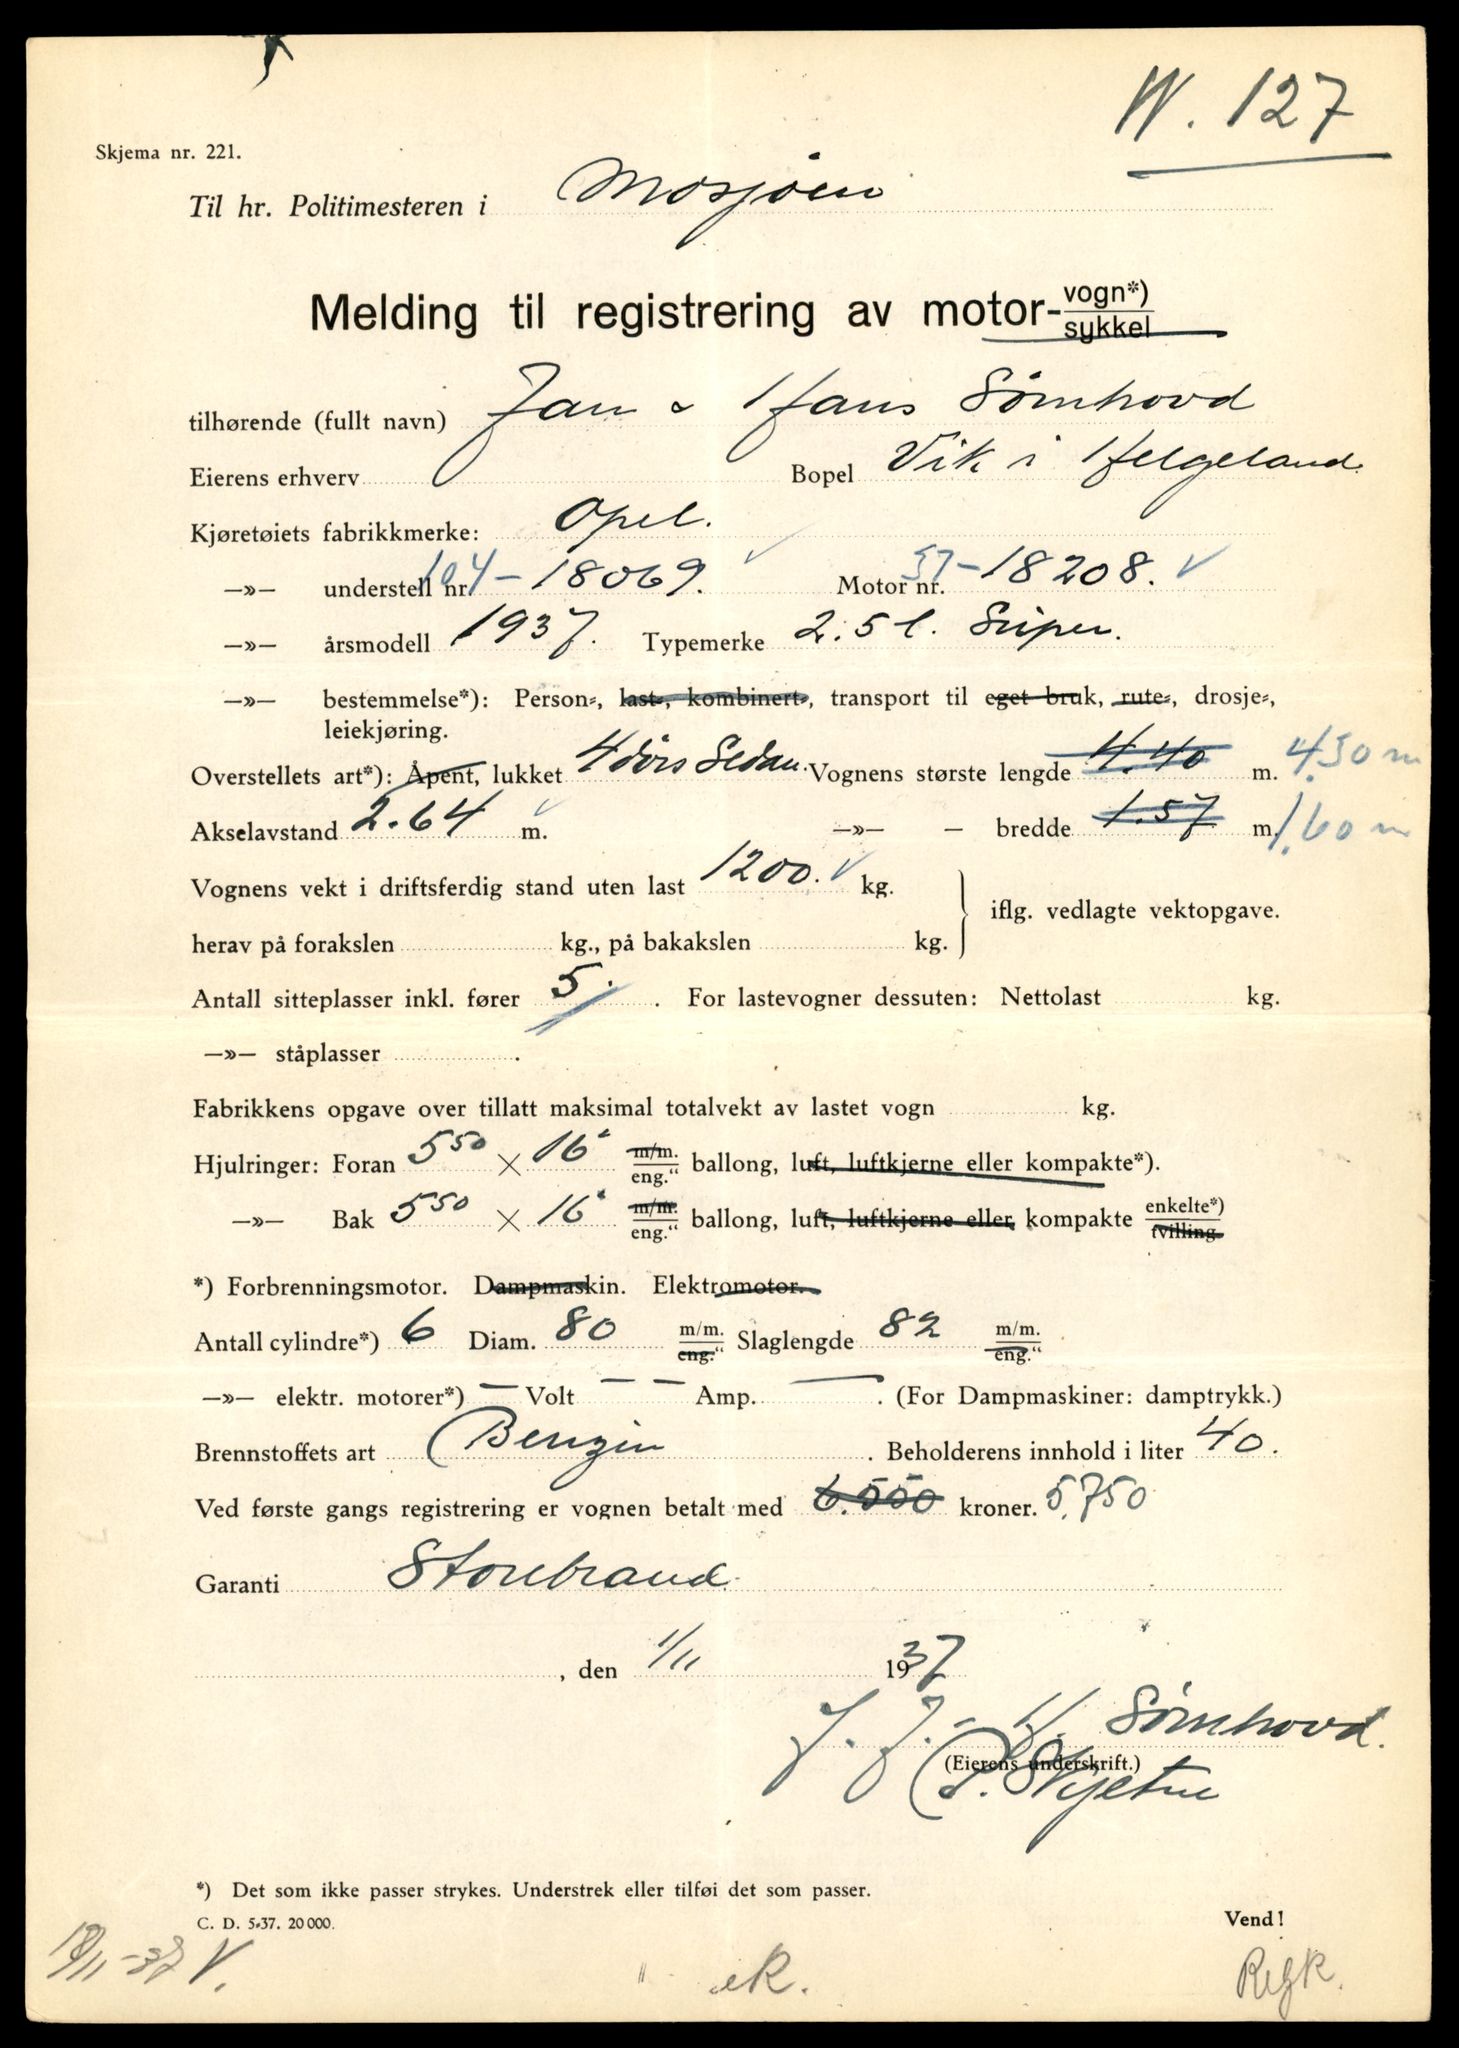 W. 127
Skjema nr. 221.
Til hr. Politimesteren i Mosjøen
Melding til registrering av motor- vogn*) / sykkel
tilhørende (fullt navn) Jan & Hans Sømhovd
Eierens erhverv Bopel Vik i Helgeland.
Kjøretøiets fabrikkmerke: Opel.
—»— understell nr. 104-18069. Motor nr. 37-18208.
—»— årsmodell 1937. Typemerke 2.5 l. Super.
—»— bestemmelse*): Person-, last-, kombinert-, transport til eget bruk, rute-, drosje-,
leiekjøring.
Overstellets art*): Åpent, lukket 4 dørs Sedan. Vognens største lengde 4.40 m. 4.50 m
Akselavstand 2.64 m. —»— — bredde 1.57 m. 1.60 m
Vognens vekt i driftsferdig stand uten last 1200. kg.
iflg. vedlagte vektopgave.
herav på forakslen kg., på bakakslen kg.
Antall sitteplasser inkl. fører 5. . For lastevogner dessuten: Nettolast kg.
—»— ståplasser .
Fabrikkens opgave over tillatt maksimal totalvekt av lastet vogn kg.
Hjulringer: Foran 5⁵⁰ × 16" m/m. / eng.“ ballong, luft, luftkjerne eller kompakte*).
—»— Bak 5⁵⁰ × 16" m/m. / eng.“ ballong, luft, luftkjerne eller kompakte enkelte*) / tvilling.
*) Forbrenningsmotor. Dampmaskin. Elektromotor.
Antall cylindre*) 6 Diam. 80 m/m. / eng.“ Slaglengde 82 m/m. / eng.“
—»— elektr. motorer*) — Volt — — Amp. — . (For Dampmaskiner: damptrykk.)
Brennstoffets art Benzin . Beholderens innhold i liter 40.
Ved første gangs registrering er vognen betalt med 6.550 kroner. 5.750
Garanti Storebrand.
, den 1/11 1937
J. J. - H. Sømhovd.
(Eierens underskrift.)
P. Skjetne
*) Det som ikke passer strykes. Understrek eller tilføi det som passer.
C. D. 5-37. 20 000.
Vend!
18/11-37 V.
eR.